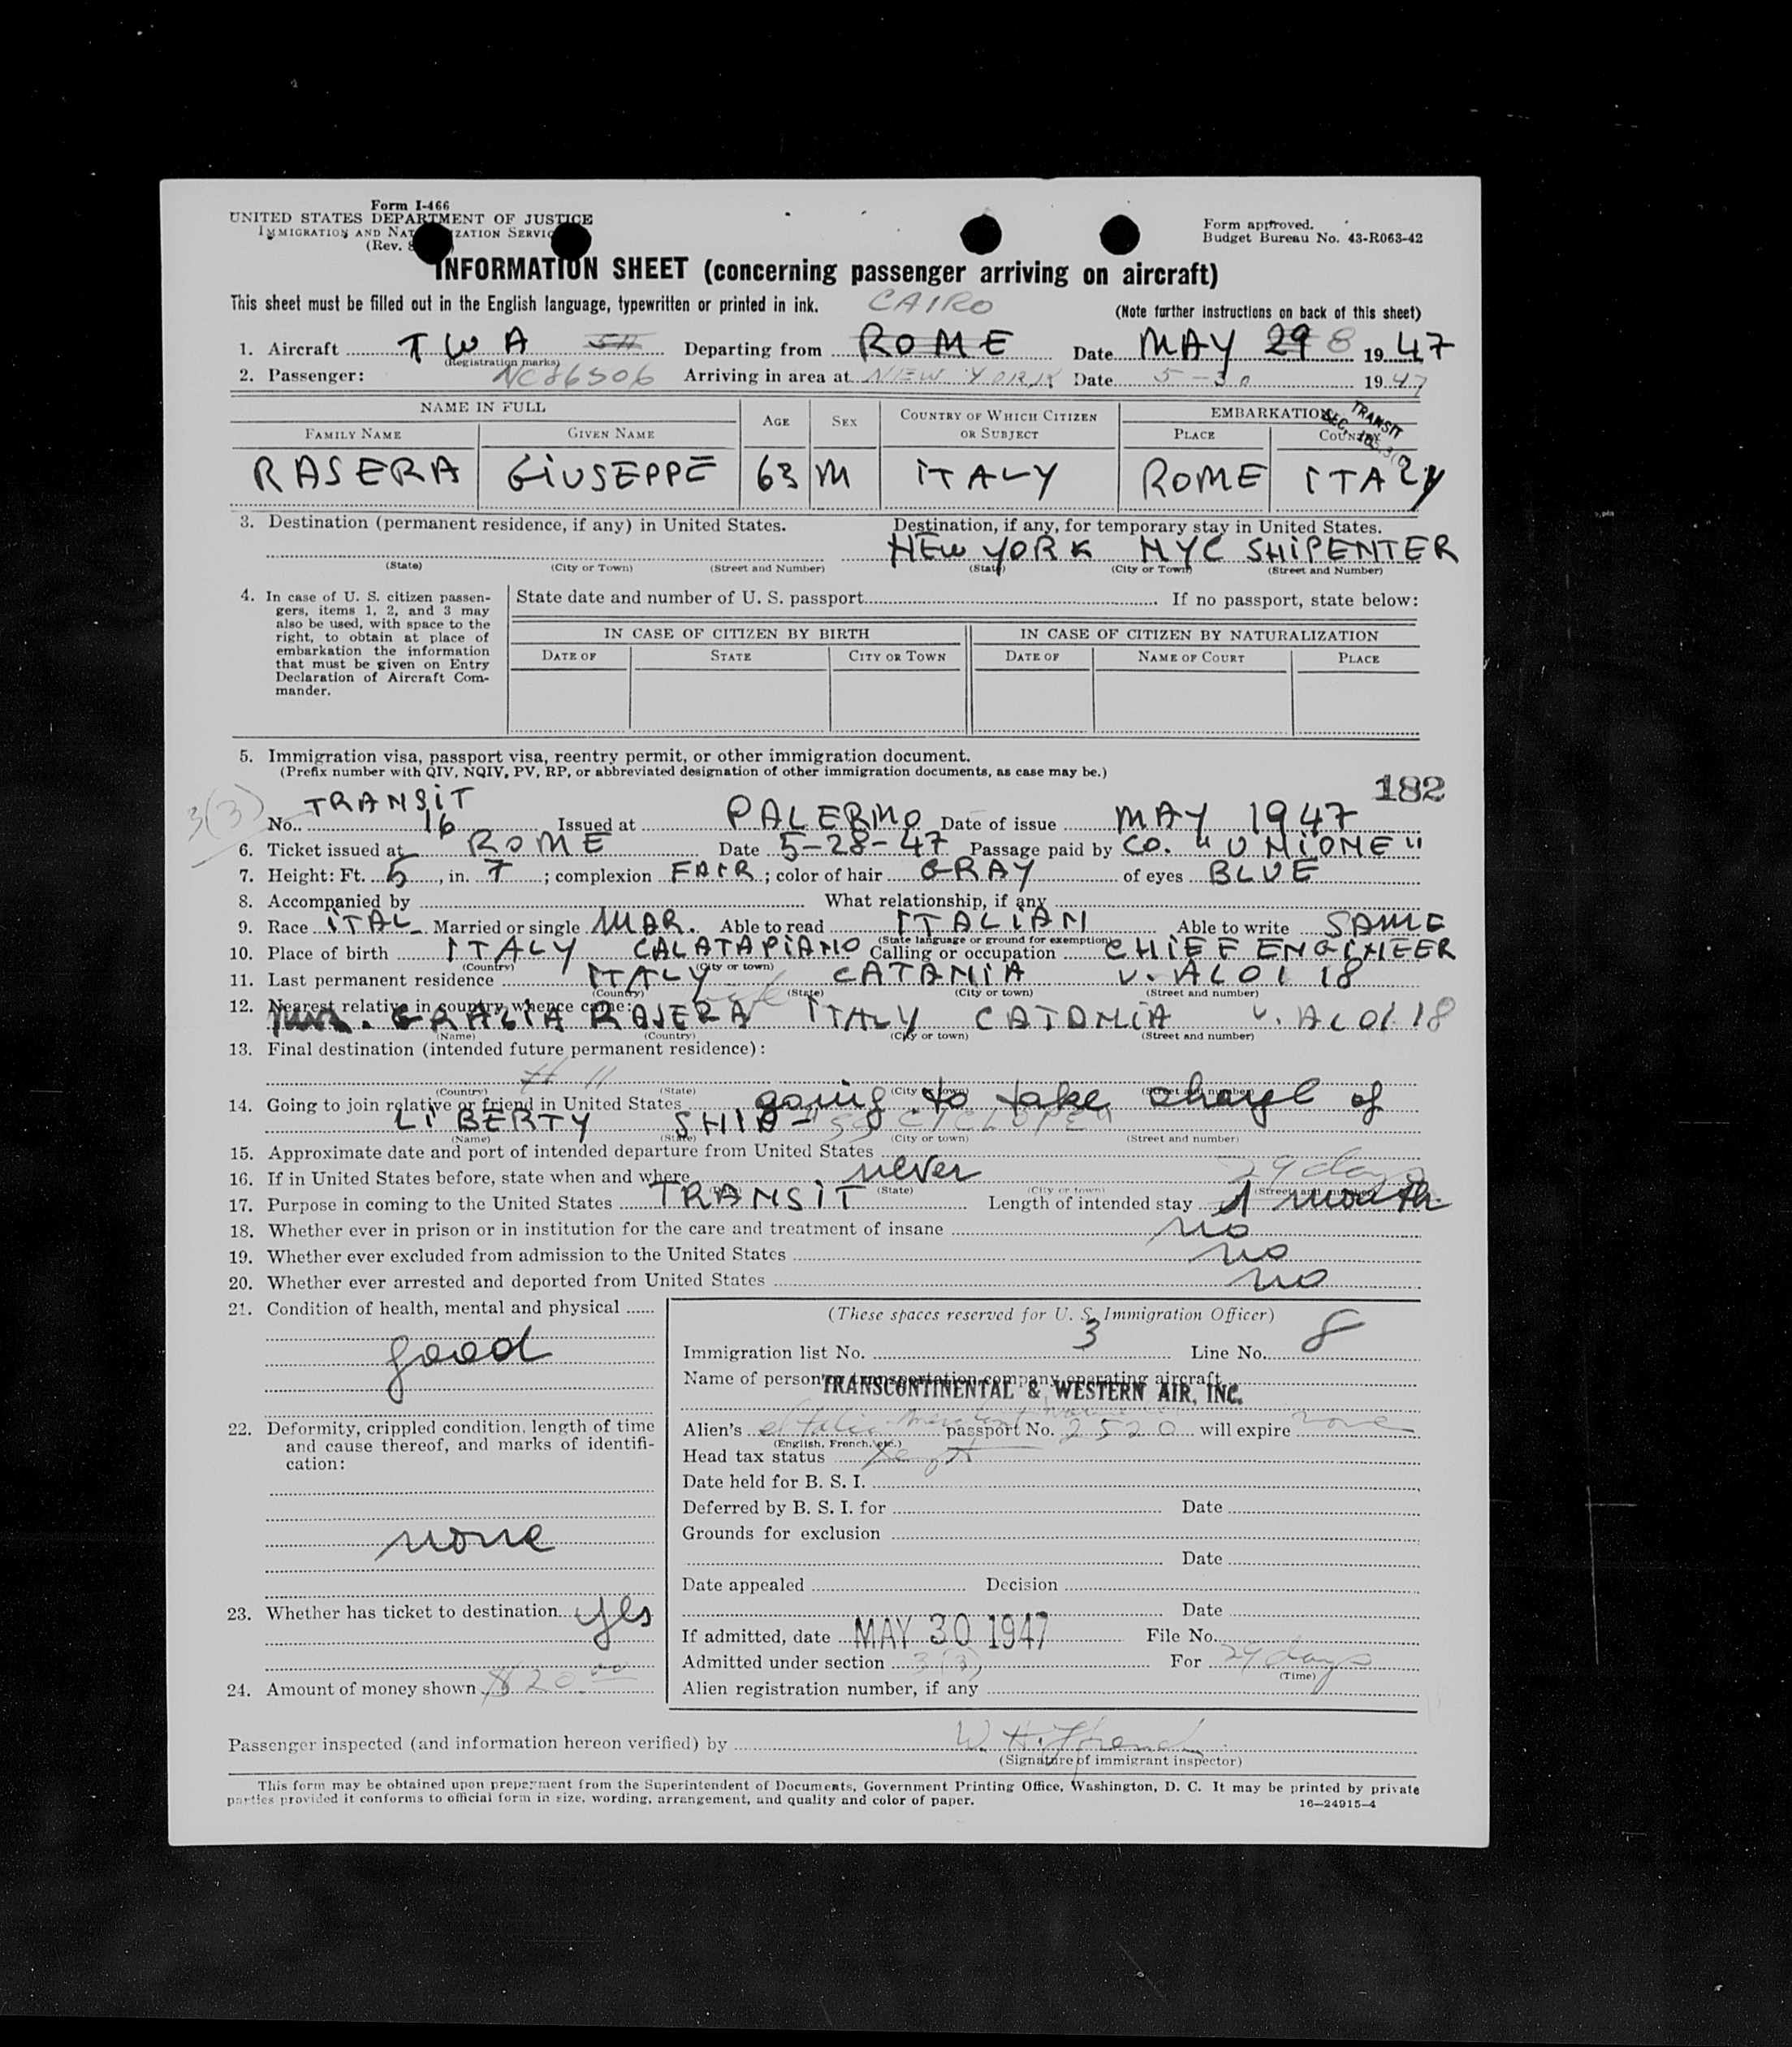 Form I-466
UNITED STATES DEPARTMENT OF JUSTICE
IMMIGRATION AND NATURALIZATION SERVICE
(Rev.
Form approved.
Budget Bureau No. 43-R063-42
INFORMATION SHEET (concerning passenger arriving on aircraft)
This sheet must be filled out in the English language, typewritten or printed in ink. CAIRO (Note further instructions on back of this sheet)
1. Aircraft TWA Departing from ROME Date MAY 29 8 1947
(Registration marks)
2. Passenger: NC86506 Arriving in area at NEW YORK Date 5-30 1947
NAME IN FULL AGE SEX COUNTRY OF WHICH CITIZEN OR SUBJECT EMBARKATION
TRANSIT
SEC.
FAMILY NAME GIVEN NAME PLACE COUNTRY
RASERA GIUSEPPE 63 M ITALY ROME ITALY
3. Destination (permanent residence, if any) in United States. Destination, if any, for temporary stay in United States.
NEW YORK NYC SHIPENTER
(State) (City or Town) (Street and Number) (State) (City or Town) (Street and Number)
4. In case of U. S. citizen passen-
gers, items 1, 2, and 3 may
also be used, with space to the
right, to obtain at place of
embarkation the information
that must be given on Entry
Declaration of Aircraft Com-
mander.
State date and number of U. S. passport If no passport, state below:
IN CASE OF CITIZEN BY BIRTH IN CASE OF CITIZEN BY NATURALIZATION
DATE OF STATE CITY OR TOWN DATE OF NAME OF COURT PLACE
5. Immigration visa, passport visa, reentry permit, or other immigration document.
(Prefix number with QIV, NQIV, PV, RP, or abbreviated designation of other immigration documents, as case may be.)
182
3(3) TRANSIT
No. 16 Issued at PALERMO Date of issue MAY 1947
6. Ticket issued at ROME Date 5-28-47 Passage paid by CO. "UNIONE"
7. Height: Ft. 5, in. 7; complexion FAIR; color of hair GRAY of eyes BLUE
8. Accompanied by What relationship, if any
9. Race ITAL Married or single MAR. Able to read ITALIAN Able to write SAME
(State language or ground for exemption)
10. Place of birth ITALY CALATAPIANO Calling or occupation CHIEF ENGINEER
(Country) (City or town)
11. Last permanent residence ITALY CATANIA V. ALOI 18
(Country) (State) (City or town) (Street and number)
12. Nearest relative in country whence came:
GRALIA RASERA ITALY CATANIA V. ALOI 18
(Name) (Country) (City or town) (Street and number)
13. Final destination (intended future permanent residence):
(Country) (State) (City or town) (Street and number)
14. Going to join relative or friend in United States going to take charge of
LIBERTY SHIP - SS CICLOPE
(Name) (State) (City or town) (Street and number)
15. Approximate date and port of intended departure from United States
16. If in United States before, state when and where never 29 days
(State) (City or town) (Street and number)
17. Purpose in coming to the United States TRANSIT Length of intended stay 1 month
18. Whether ever in prison or in institution for the care and treatment of insane no
19. Whether ever excluded from admission to the United States no
20. Whether ever arrested and deported from United States no
21. Condition of health, mental and physical
good
22. Deformity, crippled condition, length of time
and cause thereof, and marks of identifi-
cation:
none
23. Whether has ticket to destination yes
24. Amount of money shown $20.00
(These spaces reserved for U. S. Immigration Officer)
Immigration list No. 3 Line No. 8
Name of person or transportation company operating aircraft
TRANSCONTINENTAL & WESTERN AIR, INC.
Alien's Italian Merchant Marine passport No. 2520 will expire none
(English, French, etc.)
Head tax status
Date held for B. S. I.
Deferred by B. S. I. for Date
Grounds for exclusion
Date
Date appealed Decision
Date
If admitted, date MAY 30 1947 File No.
Admitted under section 3(3) For 29 days
(Time)
Alien registration number, if any
Passenger inspected (and information hereon verified) by W. H.
(Signature of immigrant inspector)
This form may be obtained upon prepayment from the Superintendent of Documents, Government Printing Office, Washington, D. C. It may be printed by private
parties provided it conforms to official form in size, wording, arrangement, and quality and color of paper. 16—24915-4